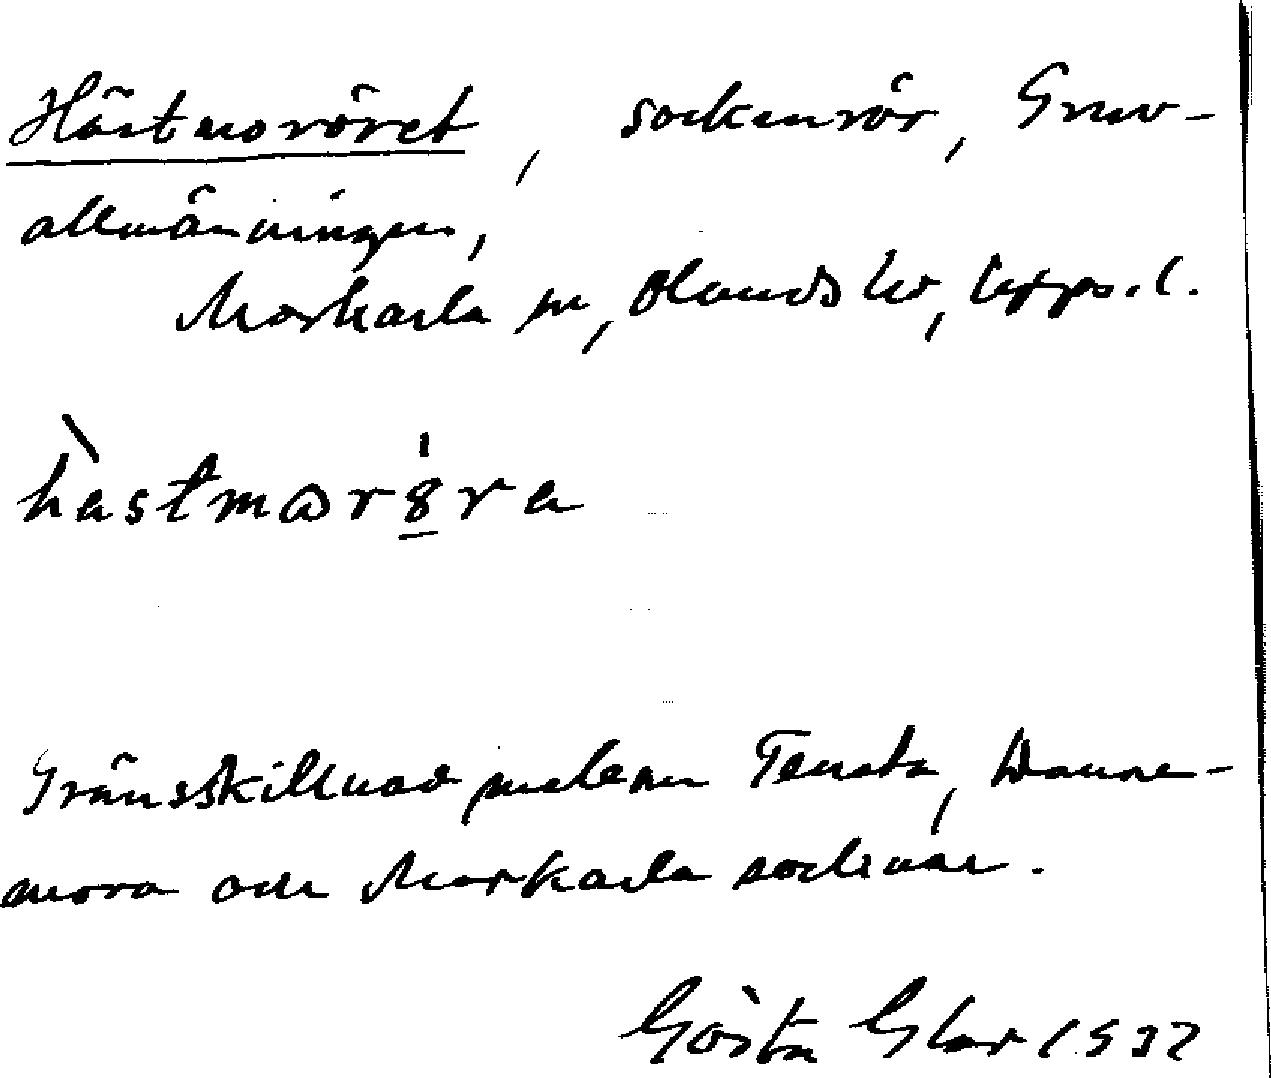 Hästmoröret, sockenrör, Gruv-
allmänningen,
Morkarla sn, Olands hd, Upps. l.
hastmoröra
Gränsskillnad mellan Tensta, Danne-
mora och Morkarla socknar.
Gösta Glar 1932